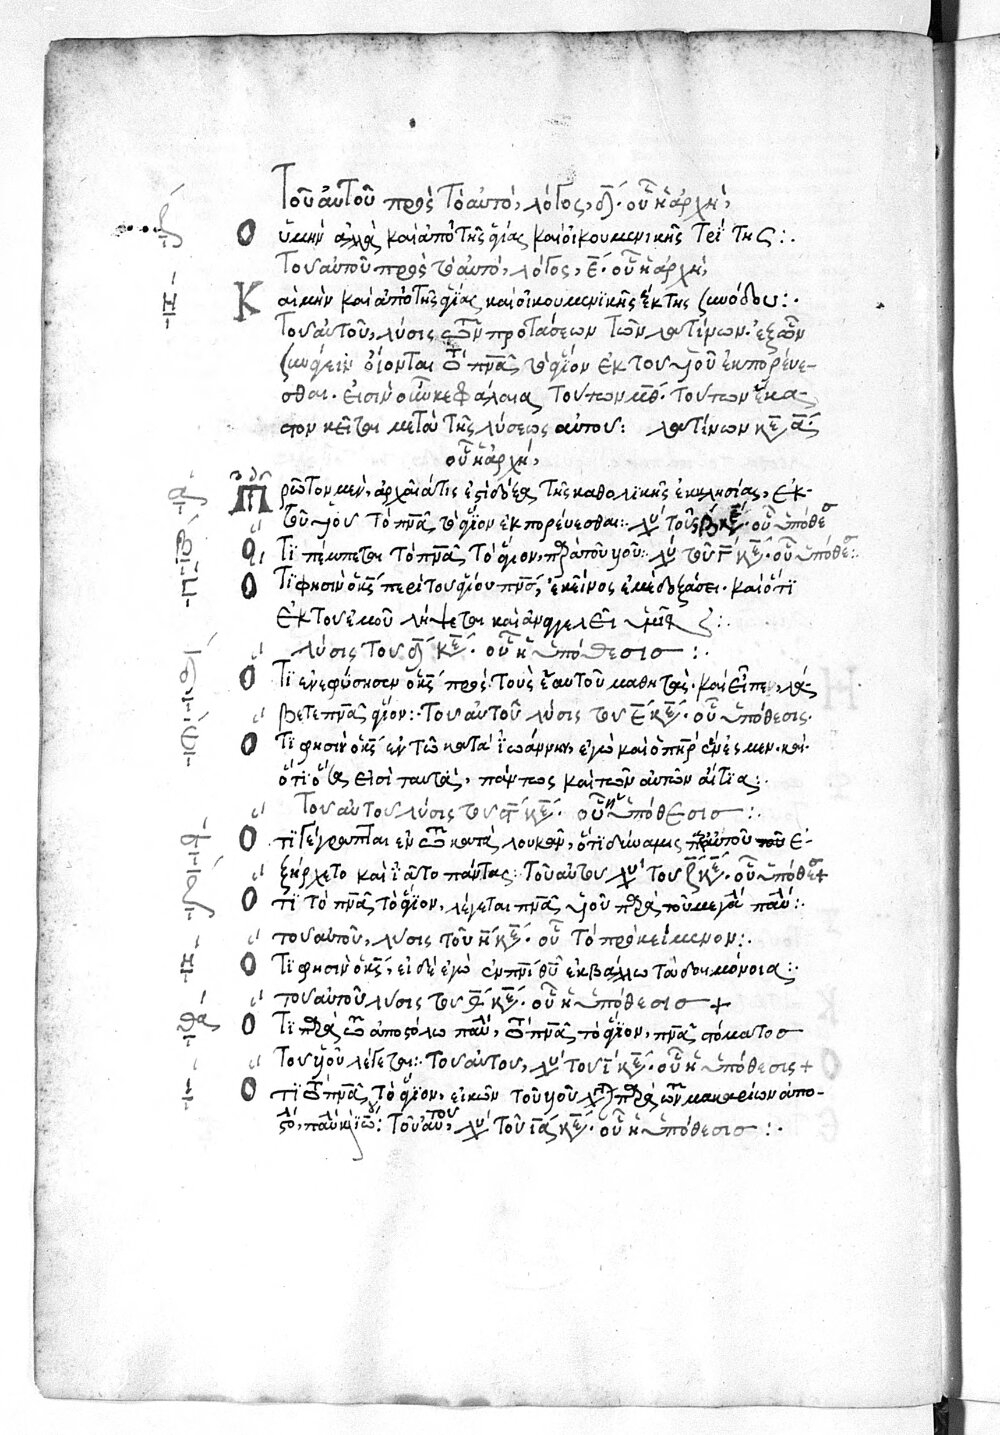 Τοῦ αὐτοῦ πρὸς τὸ αὐτὸ, λόγος, δ΄· οὗ ἡ ἀρχὴ,
ζ Ο ὐ μὴν ἀλλὰ καὶ ἀπὸ τῆς ἁγίας καὶ οἰκουμενικῆς τρίτης:·
Τοῦ αὐτοῦ πρὸς τὸ αὐτὸ, λόγος, ε΄· οὗ ἡ ἀρχὴ,
η Κ αὶ μὴν καὶ ἀπὸ τῆς ἁγίας καὶ οἰκουμενικῆς ἕκτης συνόδου:·
Τοῦ αὐτοῦ, λύσις τῶν προτάσεων τῶν λατίνων· ἐξ ὧν
συνάγειν οἴονται τὸ πνᾶ τὸ ἅγιον ἐκ τοῦ υἱοῦ ἐκπορεύε-
σθαι· εἰσὶν οὖν κεφάλαια τούτων μθ· τούτων ἕκα-
στον κεῖται μετὰ τῆς λύσεως αὐτοῦ: λατίνων κε α΄:
οὗ ἡ ἀρχὴ,
α Πρῶτον μὲν, ἀρχαιά τις ἐστὶ δόξα τῆς καθολικῆς ἐκκλησίας, ἐκ
τοῦ υἱοῦ τὸ πνᾶ τὸ ἅγιον ἐκπορεύεσθαι: λύ τοῦ β κε· οὗ ἡ ὑπόθε
β Ὅτι πέμπεται τὸ πνᾶ τὸ ἅγιον, παρὰ τοῦ υἱοῦ: λύ τοῦ γ κε· οὗ ἡ ὑπόθε:
γ Ὅτι φησὶν ὁ κς περὶ τοῦ ἁγίου πνς, ἐκεῖνος ἐμὲ δοξάσει· καὶ ὅτι
ἐκ τοῦ ἐμοῦ λήψεται καὶ ἀναγγελεῖ ὑμῖν:·
λύσις τοῦ δ κε· οὗ ἡ ὑπόθεσις:·
δ Ὅτι ἐνεφύσησεν ὁ κς πρὸς τοὺς ἑαυτοῦ μαθητὰς· καὶ εἶπε, λά
βετε πνᾶ ἅγιον: Τοῦ αὐτοῦ λύσις τοῦ ε κε· οὗ ἡ ὑπόθεσις·
ε Ὅτι φησὶν ὁ κς ἐν τῶ κατὰ ἰωάννην, ἐγὼ καὶ ὁ πηρ ἕν ἐσμεν· καὶ
ὅτι ὅσα εἰσὶ ταυτὰ, πάντως καὶ τῶν αὐτῶν αἴτια:·
Τοῦ αὐτοῦ λύσις τοῦ ς κε· οὗ ἡ ὑπόθεσις:·
ς Ὅτι γέγραπται ἐν τῶ κατὰ λουκᾶν, ὅτι δύναμις παρ αὐτοῦ ἐ-
ξήρχετο καὶ ἰᾶτο πάντας: Τοῦ αὐτοῦ λύ τοῦ ζ κε· οὗ ἡ ὑπόθε+
ζ Ὅτι τὸ πνᾶ τὸ ἅγιον, λέγεται πνᾶ υἱοῦ παρὰ τοῦ μεγά παύ:·
τοῦ αὐτοῦ, λύσις τοῦ η κε· οὗ τὸ προκείμενον:·
η Ὅτι φησὶν ὁ κς, εἰ δὲ ἐγὼ ἐν πνι θυ ἐκβάλλω τὰ δαιμόνια:·
τοῦ αὐτοῦ λύσις τοῦ θ κε· οὗ ἡ ὑπόθεσις +
θ Ὅτι παρὰ τῶ ἀποστόλω παύ, τὸ πνᾶ τὸ ἅγιον, πνᾶ στόματος
τοῦ υἱοῦ λέγεται: Τοῦ αὐτοῦ, λύ τοῦ ι κε· οὗ ἡ ὑπόθεσις +
ι Ὅτι τὸ πνᾶ τὸ ἅγιον, εἰκὼν τοῦ υἱοῦ παρὰ τῶν μακαρίων ἀπο-
στό, παύ: Τοῦ αὐτοῦ, λύ τοῦ ια κε· οὗ ἡ ὑπόθεσις:·